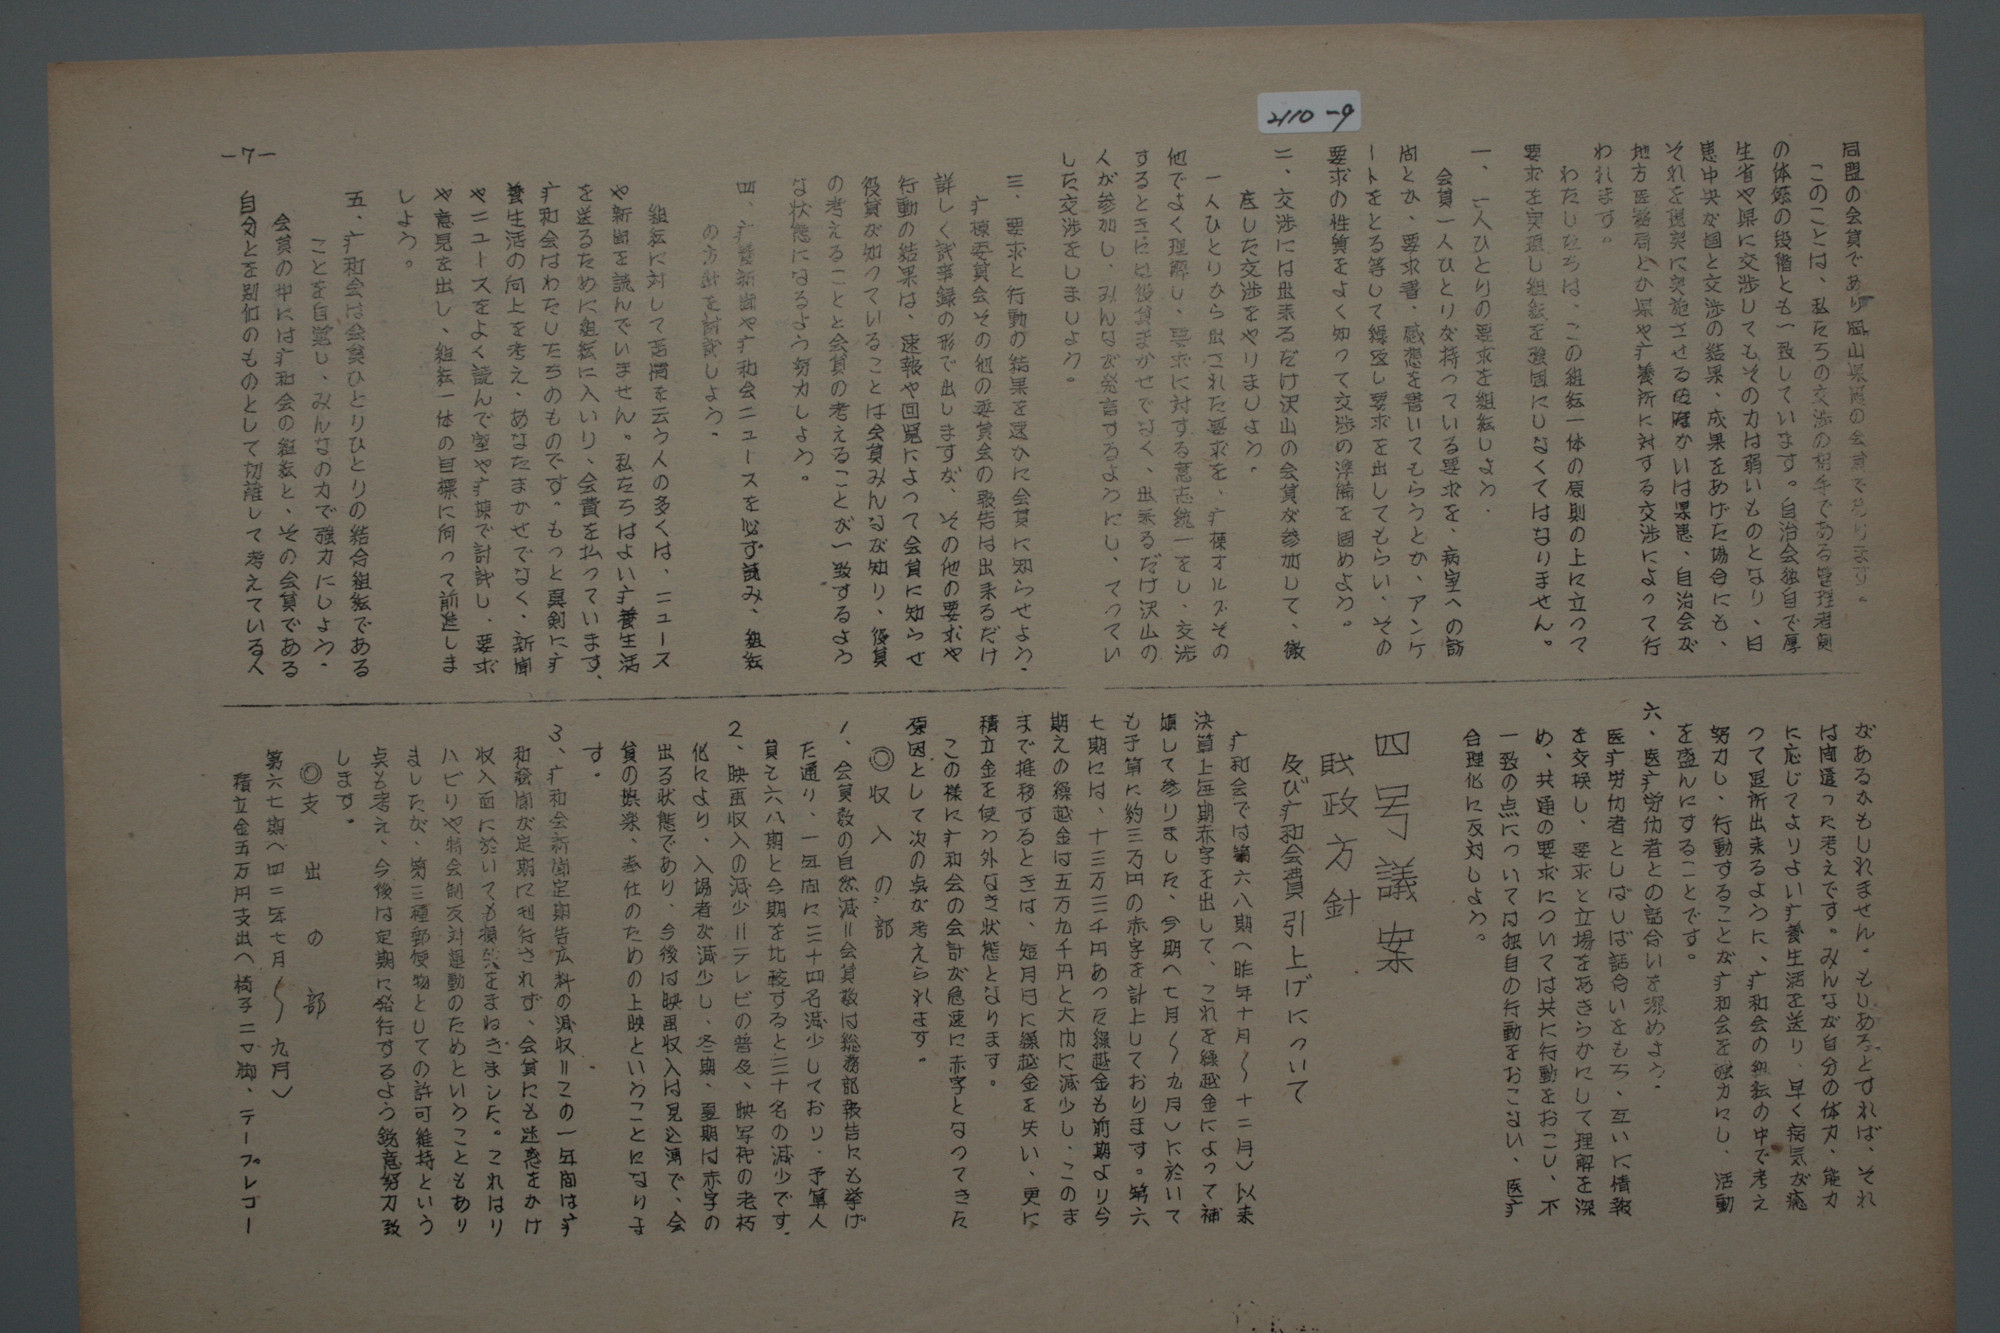 2110-9
同盟の会員であり岡山県患の会員であります。
このことは、私たちの交渉の相手である管理者側
の体系の段階とも一致しています。自治会独自で厚
生省や県に交渉してもその力は弱いものとなり、日
患中央が国と交渉の結果、成果をあげた場合にも、
それを現実に実施させる段階かいは県患、自治会が
地方医務局とか県や疒養所に対する交渉によって行
われます。
わたしたちは、この組紜一体の原則の上に立って
要求を実現し組紜を強固にしなくてはなりません。
一、一人ひとりの要求を組紜しよう.
会員一人ひとりが持っている要求を、病室への訪
問とか、要求書、感想を書いてもらうとか、アンケ
ートをとる等して繰返し要求を出してもらい、その
要求の性質をよく知って交渉の準備を固めよう。
二、交渉には出来るだけ沢山の会員が参加して、徹
底した交渉をやりましよう。
一人ひとりから出された要求を、疒棟オルグその
他でよく理解し、要求に対する意志統一をし、交渉
するときには役員まかせでなく、出来るだけ沢山の
人が参加し、みんなが発言するようにし、てってい
した交渉をしましよう。
三、要求と行動の結果を速かに会員に知らせよう.
疒棟委員会その他の委員会の報告は出来るだけ
詳しく試事録の形で出しますが、その他の要求や
行動の結果は、速報や回覧によって会員に知らせ
役員が知っていることは会員みんなが知り、役員
の考えることと会員の考えることが一致するよう
な状態になるよう努力しよう。
四、疒養新聞や疒和会ニュースを必ず読み、組紜
の方針を討試しよう.
組紜に対して苦情を云う人の多くは、ニュース
や新聞を読んでいません。私たちはよい疒養生活
を送るために組紜に入いり、会費を払っています、
疒和会はわたしたちのものです。もっと真剣に疒
養生活の向上を考え、あなたまかせでなく、新聞
やニュースをよく読んで室や疒棟で討試し、要求
や意見を出し、組紜一体の目標に向って前進しま
しよう。
五、疒和会は会員ひとりひとりの結合組紜である
ことを自覚し、みんなの力で強力にしよう.
会員の中には疒和会の組紜と、その会員である
自分とを別個のものとして切離して考えている人
-7-
があるかもしれません。もしあるとすれば、それ
は間違った考えです。みんなが自分の体力、能力
に応じてよりよい疒養生活を送り、早く病気が癒
って退所出来るように、疒和会の組紜の中で考え
努力し、行動することが疒和会を強力にし、活動
を盛んにすることです。
六、医疒労仂者との話合いを深めよう.
医疒労仂者としばしば話合いをもち、互いに情報
を交換し、要求と立場をあきらかにして理解を深
め、共通の要求については共に行動をおこし、不
一致の点については独自の行動をおこない、医疒
合理化に反対しよう。
四号議案
財政方針
及び疒和会費引上げについて
疒和会では第六八期(昨年十月〜十二月)以来
決算上毎期赤字を出して、これを繰越金によって補
填して参りました、今期(七月〜九月)に於いて
も予算に約三万円の赤字を計上しております。第六
七期には、十三万三千円あった繰越金も前期より今
期えの繰越金は五万九千円と大巾に減少し、このま
まで推移するときは、短月日に繰越金を失い、更に
積立金を使う外なき状態となります。
この様に疒和会の会計が急速に赤字となってきた
原因として次の点が考えられます。
◎収入の部
1、会員数の自然減=会員数は総務部報告にも挙げ
た通り、一年間に三十四名減少しており、予算人
員も六八期と今期を比較すると三十名の減少です.
2、映画収入の減少=テレビの普及、映写機の老朽
化により、入場者が減少し、冬期、夏期は赤字の
出る状態であり、今後は映画収入は見込薄で、会
員の娯楽、奉仕のための上映ということになりま
す。
3、疒和会新聞定期告広料の減収=この一年間は疒
和新聞が定期に刊行されず、会員にも迷惑をかけ
収入面に於いても損失をまねきました。これはリ
ハビリや特会制反対運動のためということもあり
ましたが、第三種郵便物としての許可維持という
点も考え、今後は定期に発行するよう鋭意努力致
します。
◎支出の部
第六七期(四二年七月〜九月)
積立金五万円支出(椅子二〇脚、テープレコー